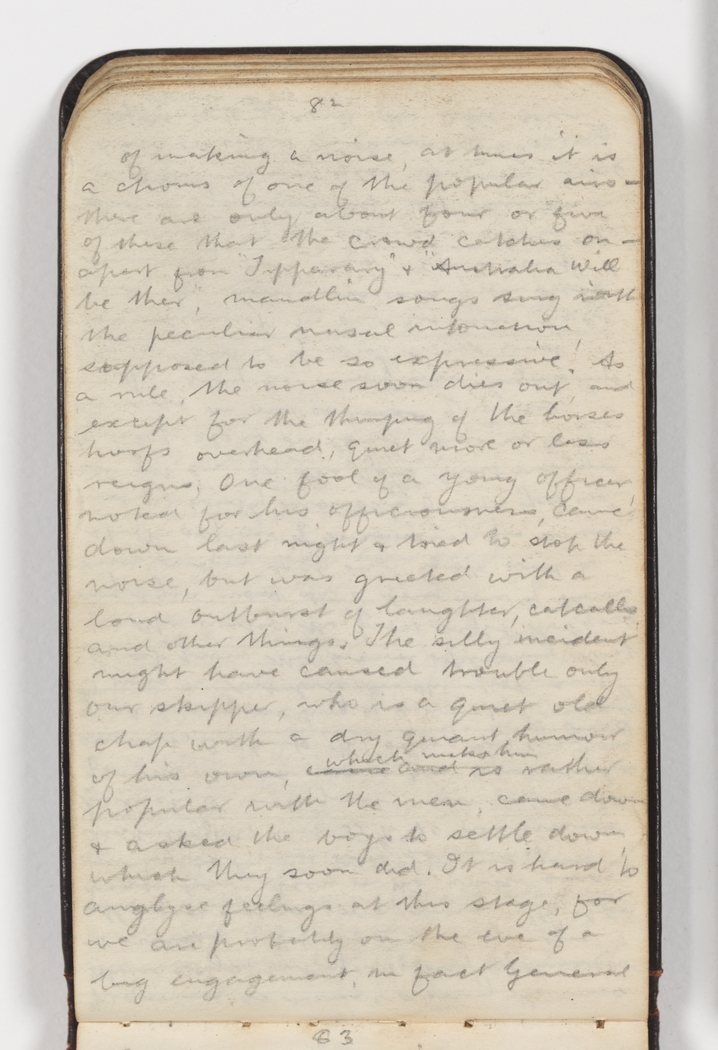 82
of making a noise, at times it is
a chorus of one of the popular airs -
there are only about four or five
of these that the crowd catches on -
apart from "Tipparary" & "Australia Will
be ther", maudlin songs sung with
the peculiar nasal intonation
supposed to be so expressive! As
a rule, the noise soon dies out, and
except for the thumping of the horses
hoofs overhead, quiet more or less
reigns. One fool of a young officer
noted for his officiousness, came
down last night & tried to stop the
noise, but was greeted with a
loud outburst of laughter, catcalls
and other things. The silly incident
might have caused trouble only
our skipper, who is a quiet old
chap with a dry quaint humour
which makes him
of his own, came and is rather
popular with the men, came down
& asked the boys to settle down,
which they soon did. It is hard to
anylyse feelings at this stage, for
we are probably on the eve of a
big engagement, in fact General
83